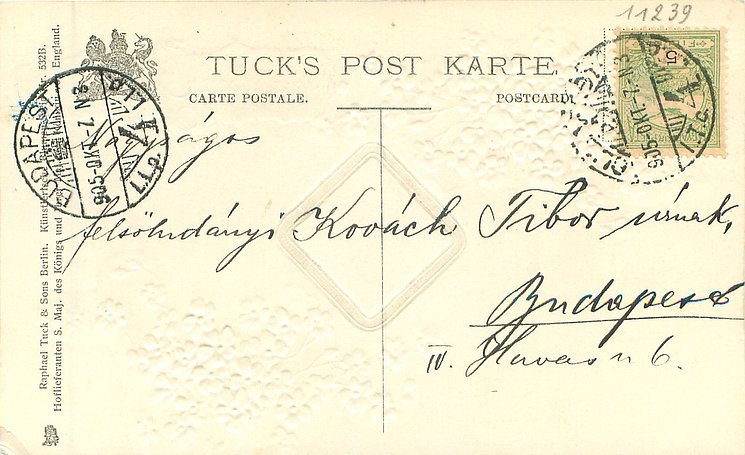 11239
TUCK'S POST KARTE.
CARTE POSTALE.
POSTCARD.
BUDAPEST
905 OKT. 7. N 8
905 OKT. 7. N 8
Nagyságos
felsőlndányi Kovách Tibor úrnak,
Budapest
IV. Havas u 6.
Raphael Tuck & Sons Berlin.
Hoflieferanten S. Maj. des Königs und
England.
532B.